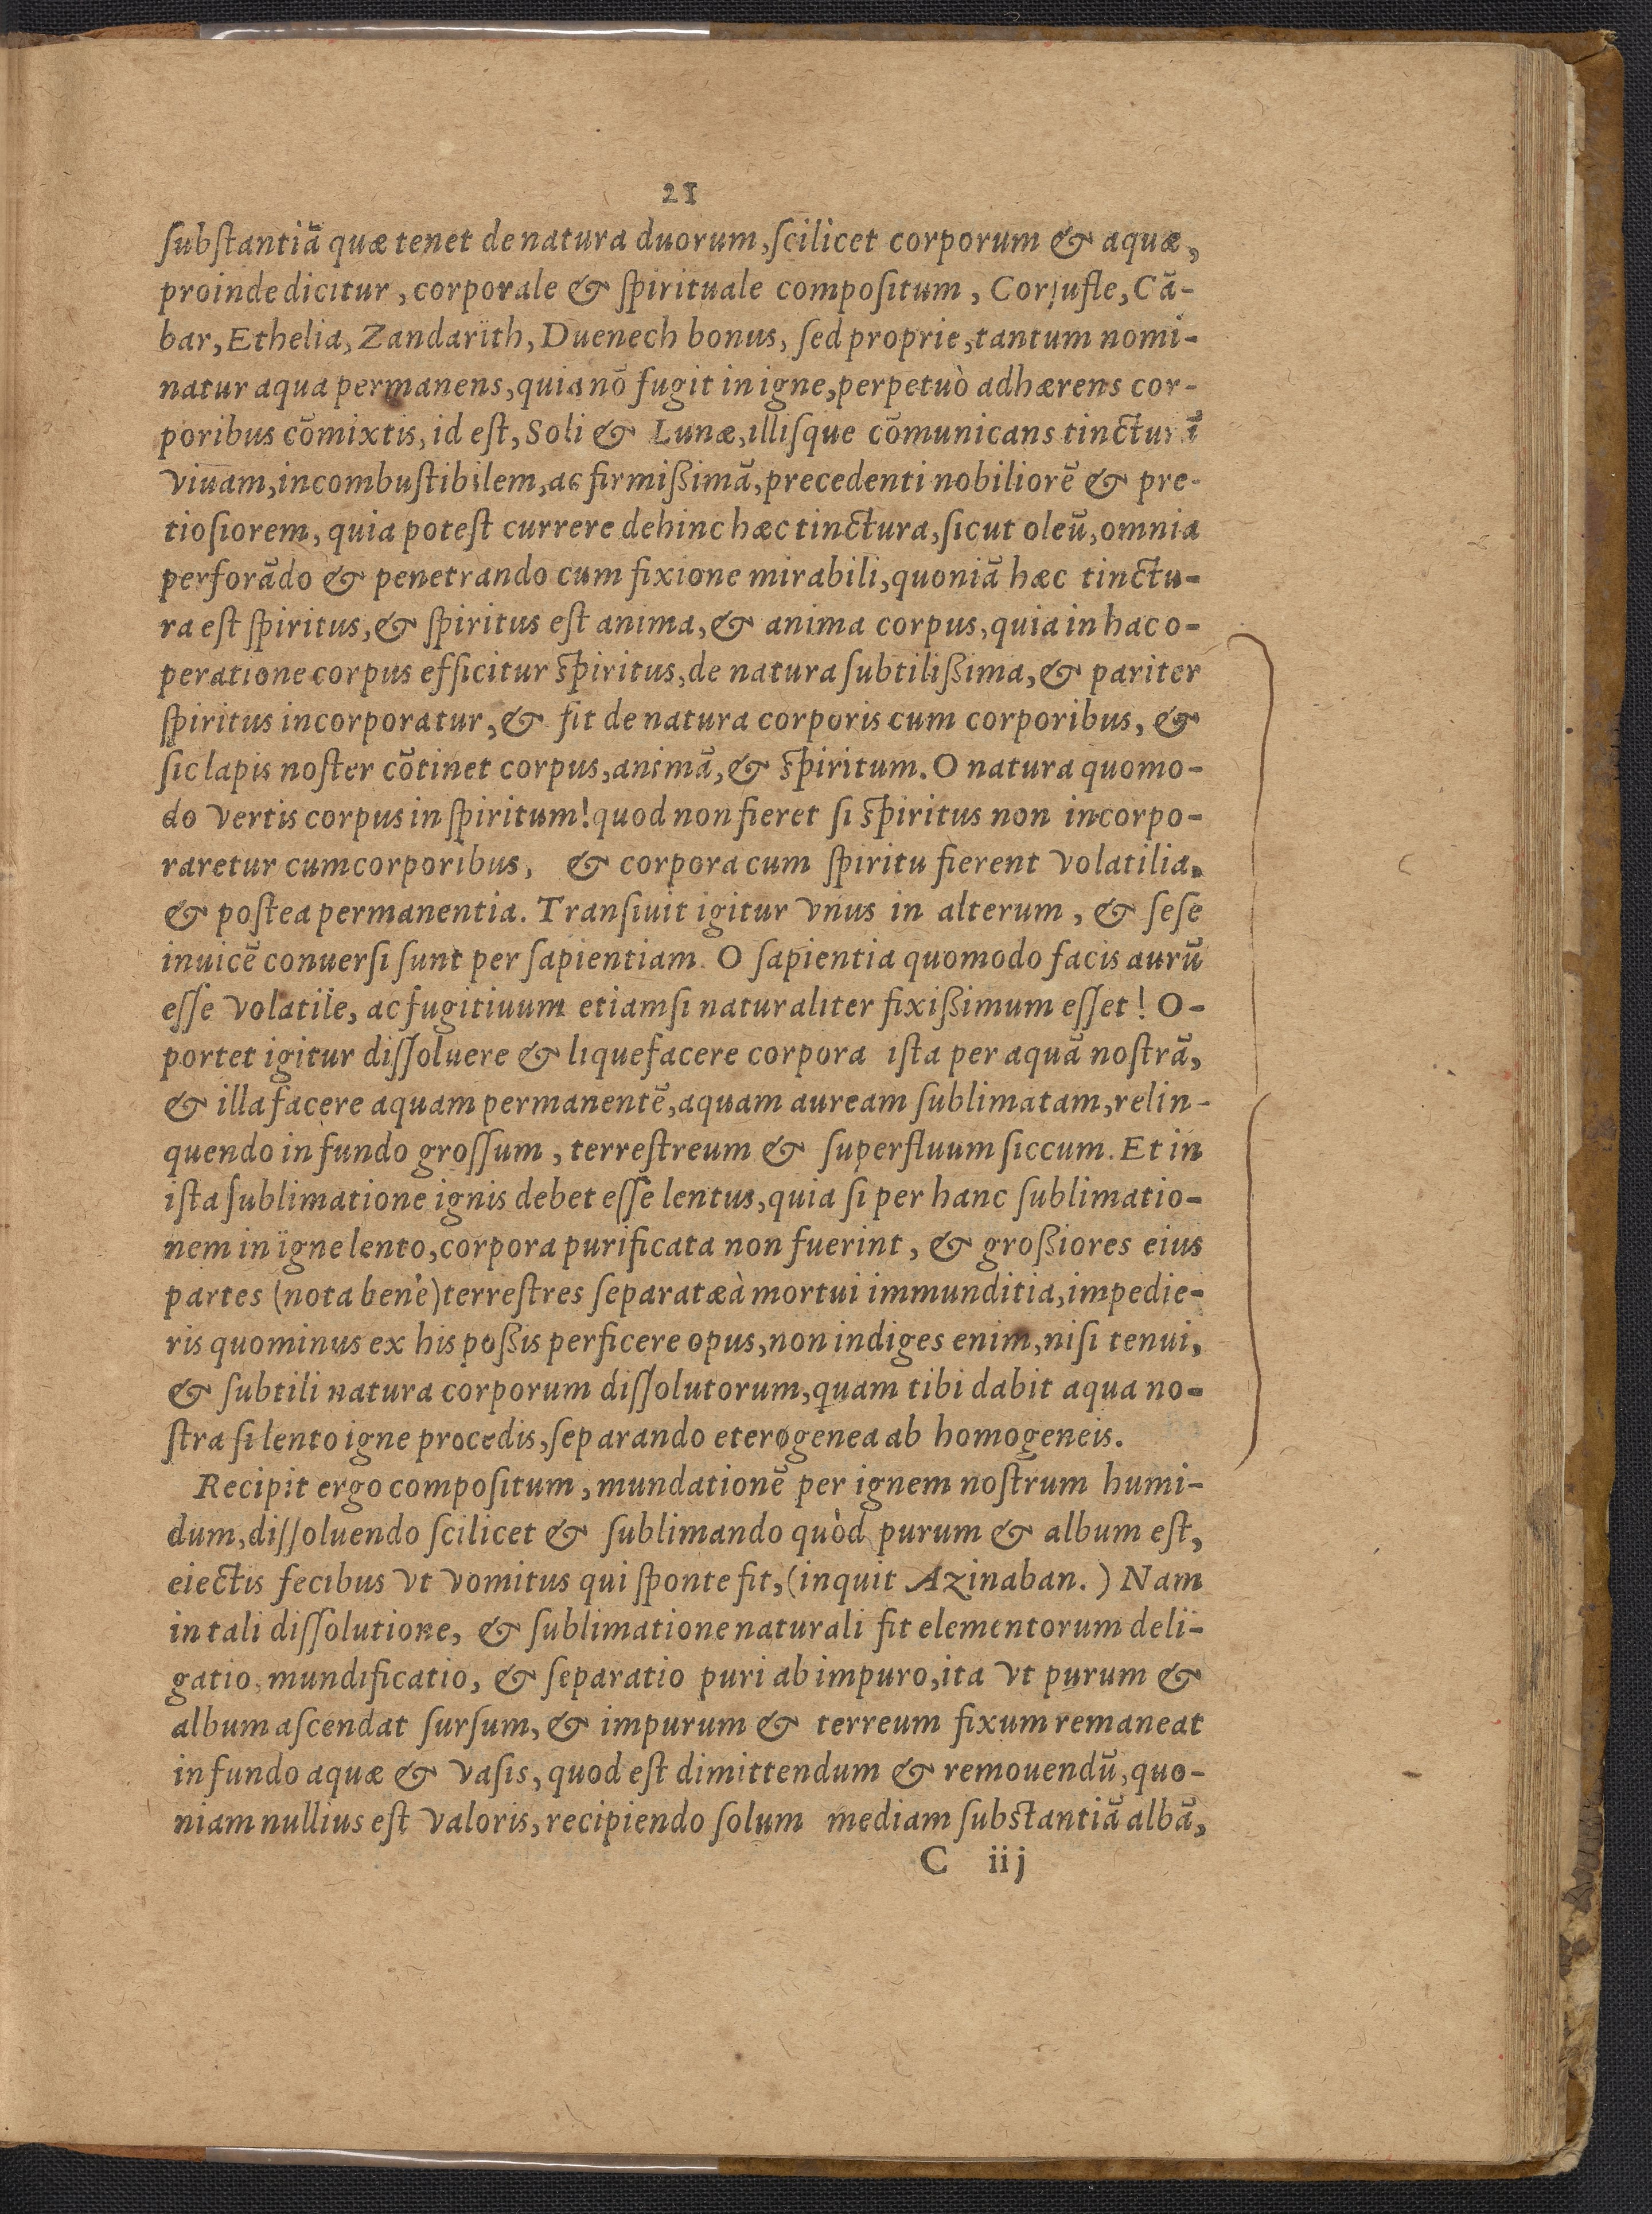 21
ſubſtantiā quæ tenet de natura duorum, ſcilicet corporum & aquæ,
proinde dicitur, corporale & ſpirituale compoſitum, Corſufle, Cā-
bar, Ethelia, Zandarith, Duenech bonus, ſed proprie, tantum nomi-
natur aqua permanens, quia nō fugit in igne, perpetuò adhærens cor-
poribus cōmixtis, id eſt, Soli & Lunæ, illiſque cōmunicans tincturā
viuam, incombuſtibilem, ac firmißimā, precedenti nobiliorē & pre-
tioſiorem, quia poteſt currere dehinc hæc tinctura, ſicut oleū, omnia
perforādo & penetrando cum fixione mirabili, quoniā hæc tinctu-
ra eſt ſpiritus, & ſpiritus eſt anima, & anima corpus, quia in hac o-
peratione corpus efſicitur ſpiritus, de natura ſubtilißima, & pariter
ſpiritus incorporatur, & fit de natura corporis cum corporibus, &
ſic lapis noſter cōtinet corpus, animā, & ſpiritum. O natura quomo-
do vertis corpus in ſpiritum! quod non fieret ſi ſpiritus non incorpo-
raretur cum corporibus, & corpora cum ſpiritu fierent volatilia,
& poſtea permanentia. Tranſiuit igitur vnus in alterum, & ſeſe
inuicē conuerſi ſunt per ſapientiam. O ſapientia quomodo facis aurū
eſſe volatile, ac fugitiuum etiamſi naturaliter fixißimum eſſet! O-
portet igitur diſſoluere & liquefacere corpora iſta per aquā noſtrā,
& illa facere aquam permanentē, aquam auream ſublimatam, relin-
quendo in fundo groſſum, terreſtreum & ſuperfluum ſiccum. Et in
iſta ſublimatione ignis debet eſſe lentus, quia ſi per hanc ſublimatio-
nem in igne lento, corpora purificata non fuerint, & großiores eius
partes (nota benè) terreſtres ſeparatæ à mortui immunditia, impedie-
ris quominus ex his poßis perficere opus, non indiges enim, niſi tenui,
& ſubtili natura corporum diſſolutorum, quam tibi dabit aqua no-
ſtra ſi lento igne procedis, ſeparando eterogenea ab homogeneis.
Recipit ergo compoſitum, mundationē per ignem noſtrum humi-
dum, diſſoluendo ſcilicet & ſublimando quòd purum & album eſt,
eiectis fecibus vt vomitus qui ſponte fit, (inquit Azinaban.) Nam
in tali diſſolutione, & ſublimatione naturali fit elementorum deli-
gatio, mundificatio, & ſeparatio puri ab impuro, ita vt purum &
album aſcendat ſurſum, & impurum & terreum fixum remaneat
in fundo aquæ & vaſis, quod eſt dimittendum & remouendū, quo-
niam nullius eſt valoris, recipiendo ſolum mediam ſubſtantiā albā,
C iij